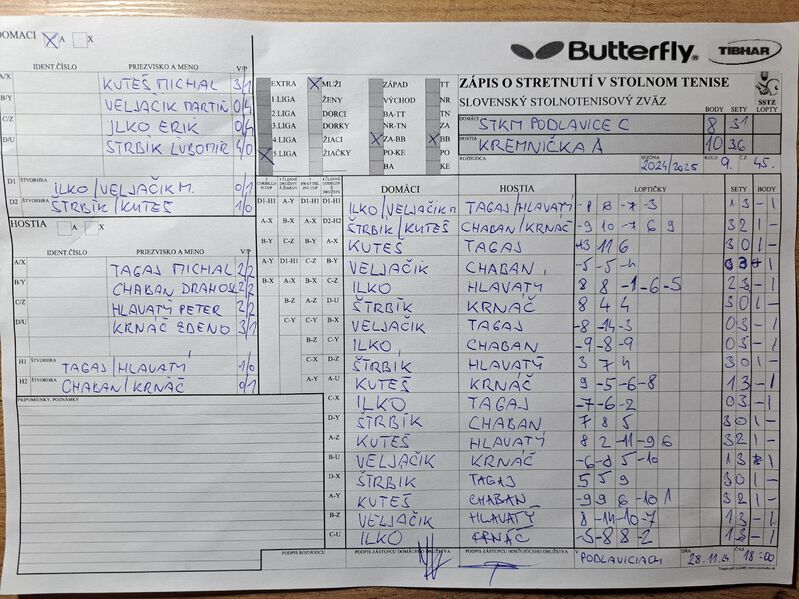 DOMÁCI X A X
IDENT.ČÍSLO PRIEZVISKO A MENO V/P
A/X KUTEŠ MICHAL 3/1
B/Y VELJAČIK MARTIN 0/4
C/Z ILKO ERIK 0/4
D/U ŠTRBÍK ĽUBOMÍR 4/0
D1 ŠTVORHRA ILKO/VELJAČIK M. 0/1
D2 ŠTVORHRA ŠTRBÍK/KUTEŠ 1/0
HOSTIA A X
IDENT.ČÍSLO PRIEZVISKO A MENO V/P
A/X TAGAJ MICHAL 2/2
B/Y CHABAN DRAHOŠ 2/2
C/Z HLAVATÝ PETER 2/2
D/U KRNÁČ ZDENO 3/1
H1 ŠTVORHRA TAGAJ/HLAVATÝ 1/0
H2 ŠTVORHRA CHABAN/KRNÁČ 0/1
PRIPOMIENKY, POZNÁMKY
Butterfly® TIBHAR
EXTRA X MUŽI ZÁPAD TT
1.LIGA ŽENY VÝCHOD NR
2.LIGA DORCI BA-TT TN
3.LIGA DORKY NR-TN ZA
4.LIGA ŽIACI X ZA-BB X BB
X 5.LIGA ŽIAČKY PO-KE PO
BA KE
ZÁPIS O STRETNUTÍ V STOLNOM TENISE
SLOVENSKÝ STOLNOTENISOVÝ ZVÄZ SSTZ
BODY SETY LOPTY
DOMÁCI STKM PODLAVICE C 8 31
HOSTIA KREMNIČKA A 10 36
ROZHODCA SEZÓNA 2024/2025 KOLO 9. Č.Z. 45.
DOMÁCI HOSTIA LOPTIČKY SETY BODY
D1-H1 A-Y D1-H1 D1-H1 ILKO/VELJAČIK M TAGAJ/HLAVATÝ -8 8 -7 -3 1 3 - 1
A-X B-X A-X D2-H2 ŠTRBÍK/KUTEŠ CHABAN/KRNÁČ -9 10 -7 6 9 3 2 1 -
B-Y C-Z B-Y A-X KUTEŠ TAGAJ 13 11 6 3 0 1 -
A-Y D1-H1 C-Z B-Y VELJAČIK CHABAN -5 -5 -4 0 3 - 1
B-X A-X B-X C-Z ILKO HLAVATÝ 8 8 -1 -6 -5 2 3 - 1
B-Z A-Z D-U ŠTRBÍK KRNÁČ 8 4 4 3 0 1 -
C-Y C-Y B-X VELJAČIK TAGAJ -8 -14 -3 0 3 - 1
B-Z C-Y ILKO CHABAN -9 -8 -9 0 3 - 1
C-X D-Z ŠTRBÍK HLAVATÝ 3 7 4 3 0 1 -
A-Y A-U KUTEŠ KRNÁČ 9 -5 -6 -8 1 3 - 1
C-X ILKO TAGAJ -7 -6 -2 0 3 - 1
D-Y ŠTRBÍK CHABAN 7 8 5 3 0 1 -
A-Z KUTEŠ HLAVATÝ 8 2 -11 -9 6 3 2 1 -
B-U VELJAČIK KRNÁČ -6 -8 5 -10 1 3 - 1
D-X ŠTRBÍK TAGAJ 5 5 9 3 0 1 -
A-Y KUTEŠ CHABAN -9 9 6 -10 1 3 2 1 -
B-Z VELJAČIK HLAVATÝ 8 -14 -10 -7 1 3 - 1
C-U ILKO KRNÁČ -5 -8 8 -2 1 3 - 1
PODPIS ROZHODCU PODPIS ZÁSTUPCU DOMÁCEHO DRUŽSTVA PODPIS ZÁSTUPCU HOSŤUJÚCEHO DRUŽSTVA V PODLAVICIACH DŇA 28.11.24 ČAS 18:00